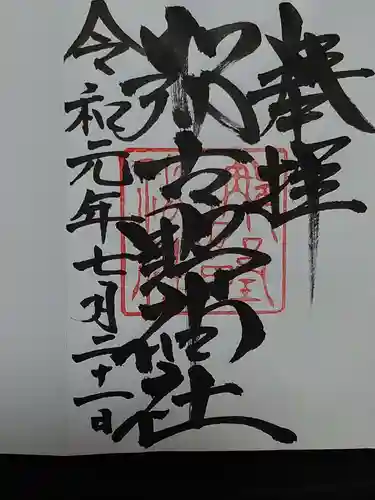 奉拝
那古野神社
令和元年七月二十一日